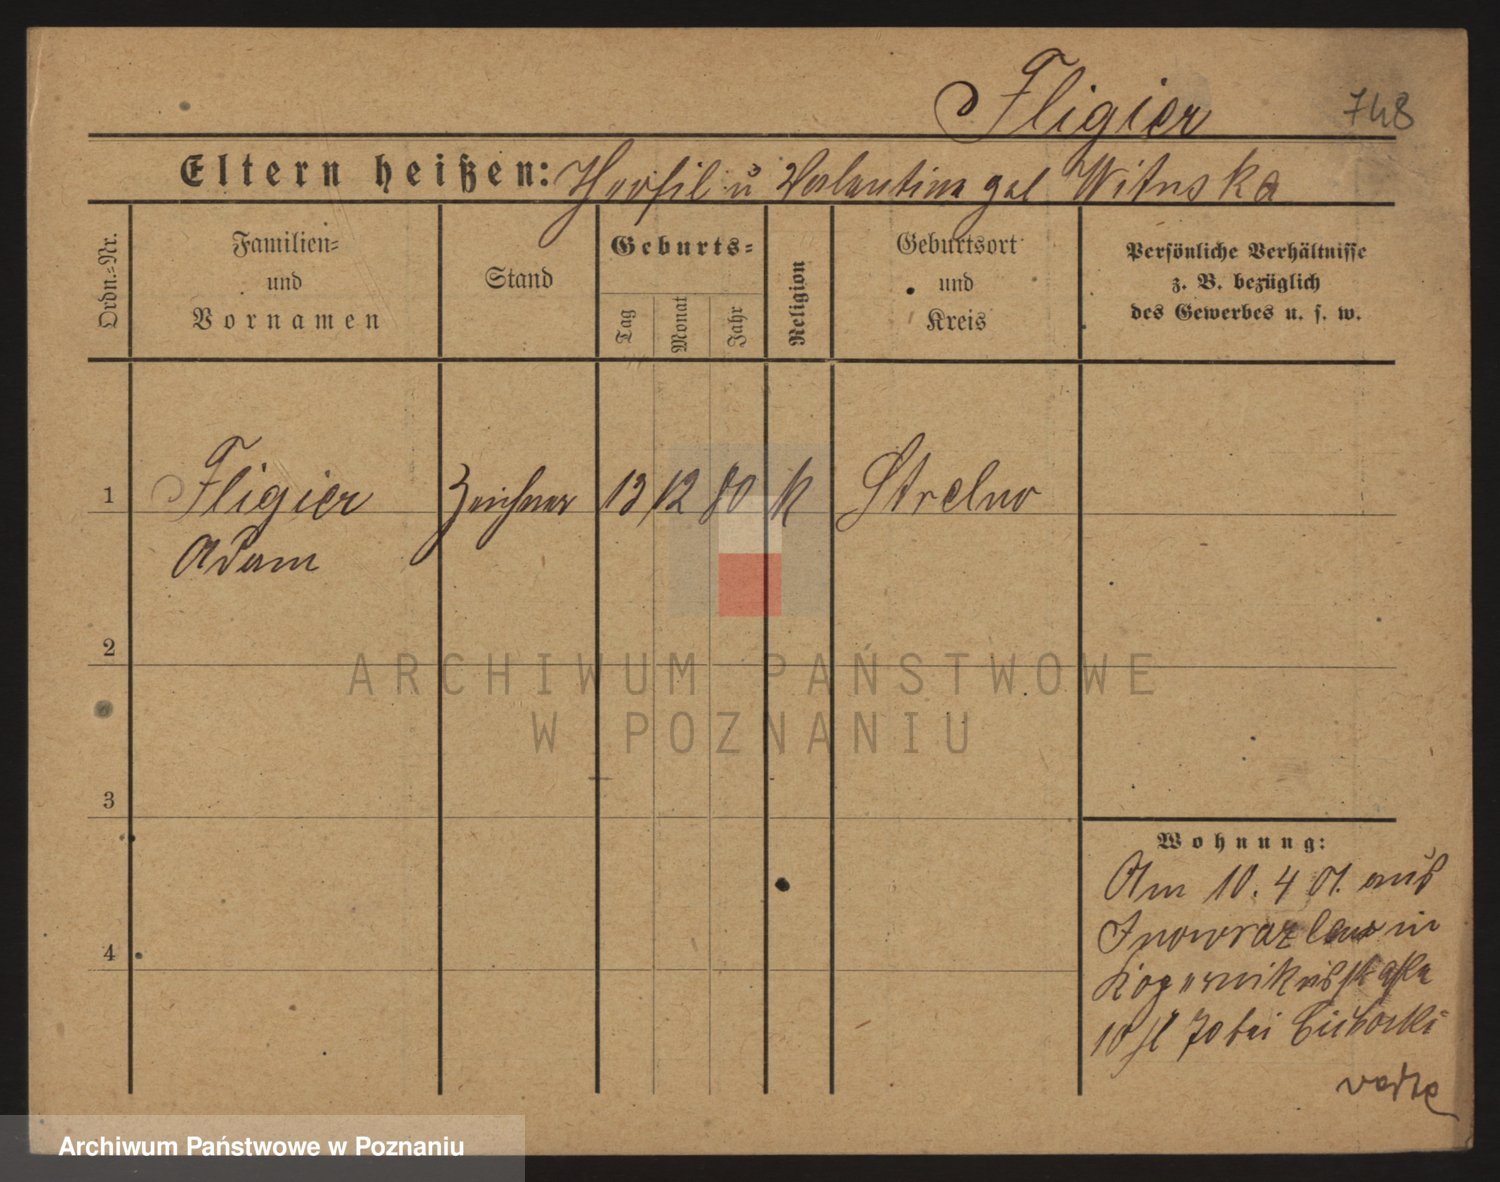 Fligier 748
Eltern heißen: u Valentina geb Wituska
Ordn.=Nr.
Familien=
und
Vornamen
Stand
Geburts=
Tag
Monat
Jahr
Religion
Geburtsort
und
Kreis
Persönliche Verhältnisse
z. B. bezüglich
des Gewerbes u. s. w.
1 Fligier Zeichner 13 12 80 K Strelno
Adam
2
3
4
ARCHIWUM PAŃSTWOWE
W POZNANIU
Wohnung:
Am 10. 4 01. aus
Inowrazlaw in
10 bei Cichocki
Archiwum Państwowe w Poznaniu